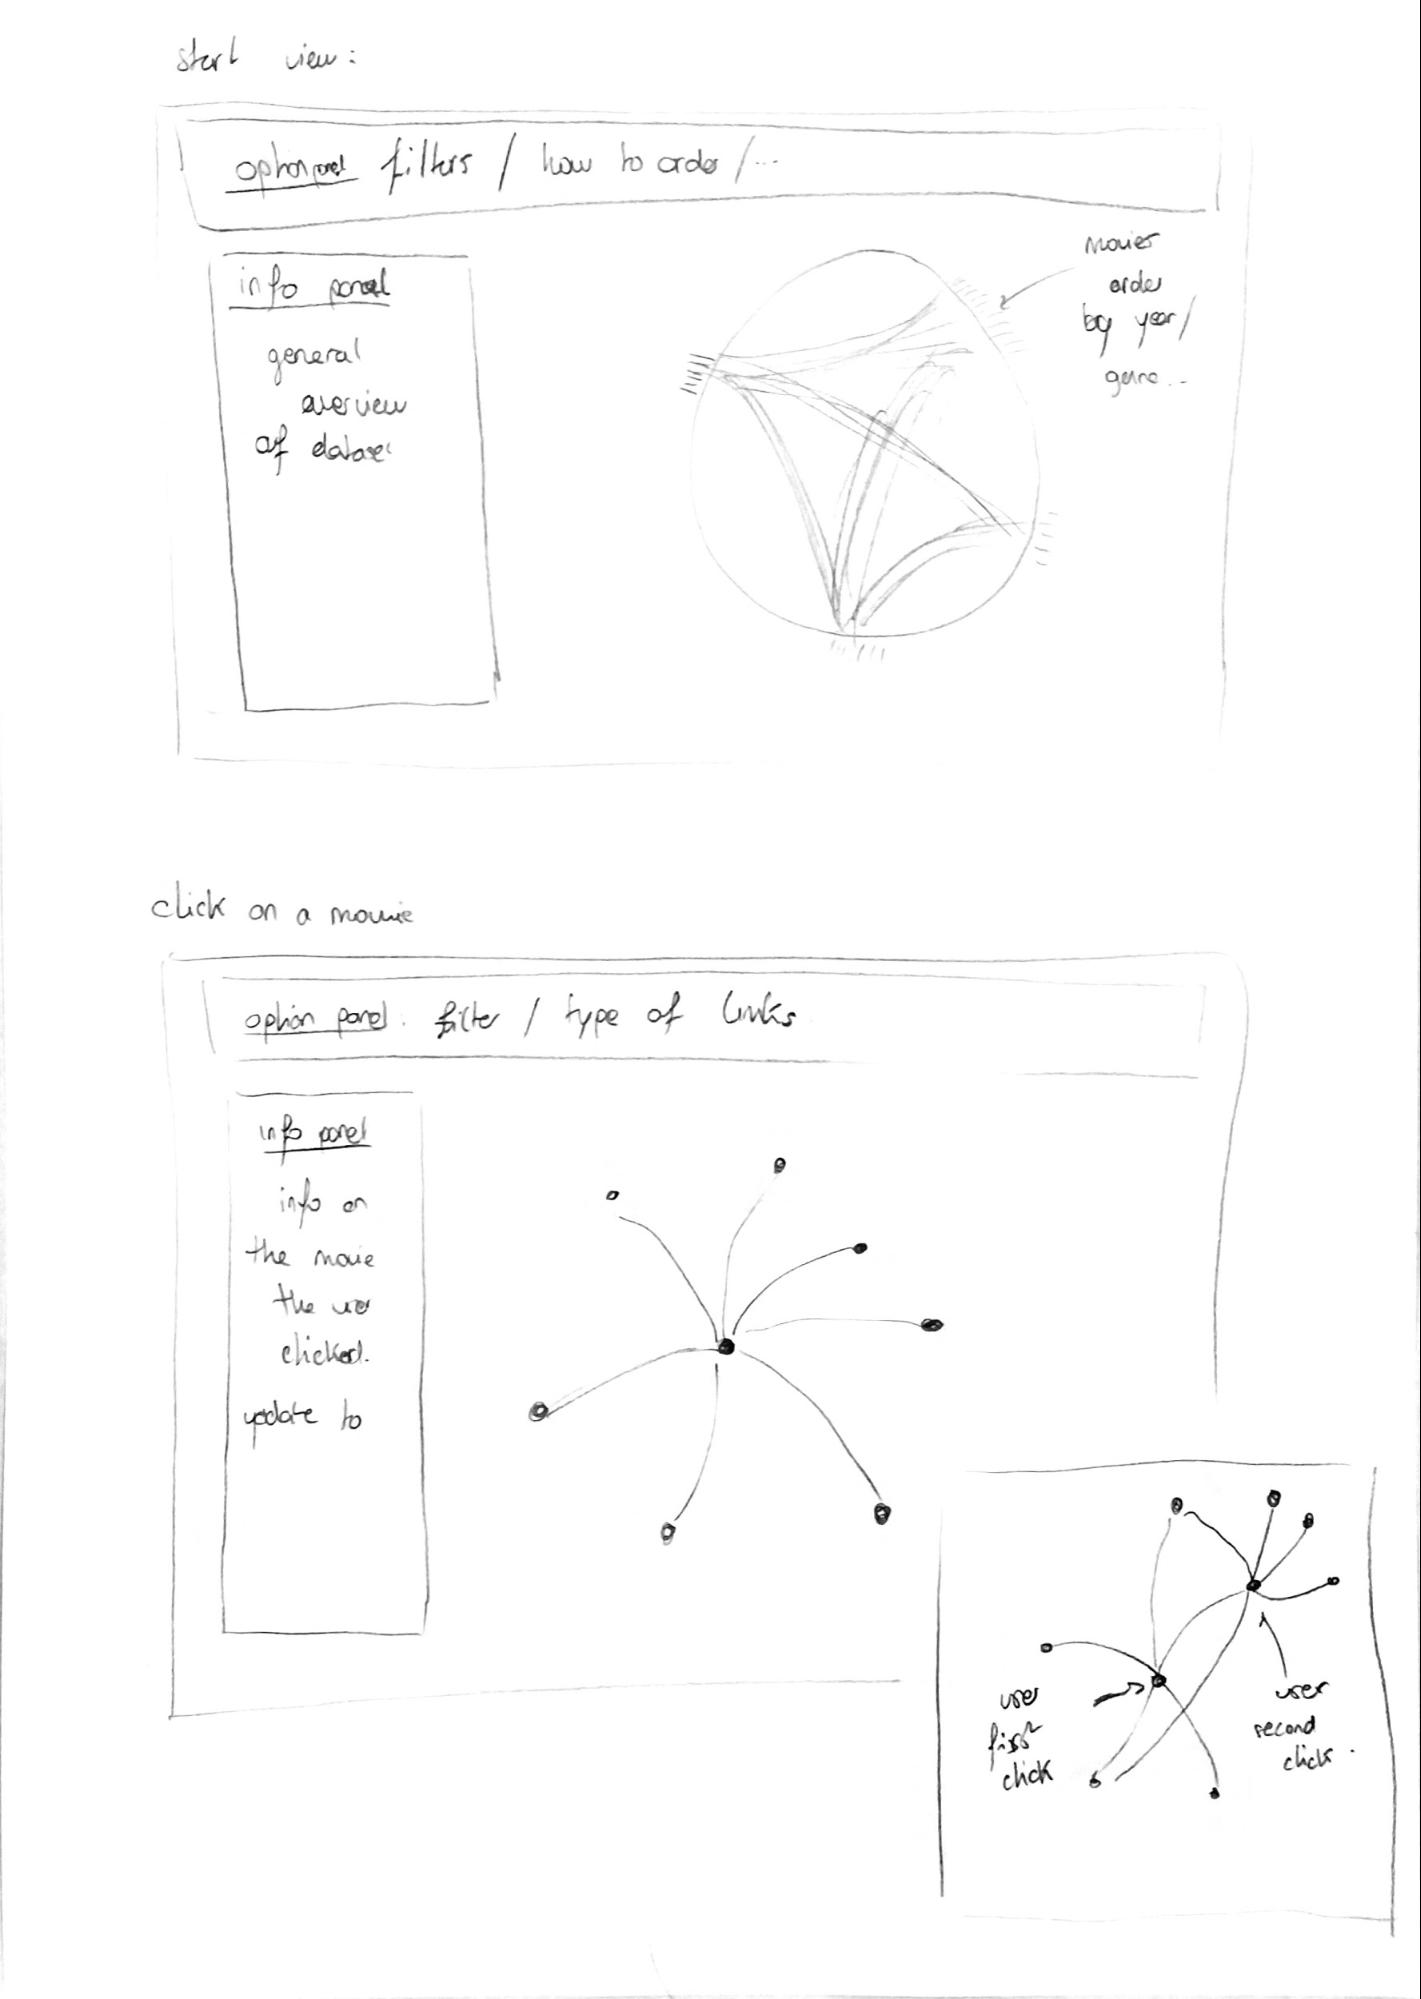 start view:
option panel filters / how to order / ...
info panel
general
overview
of dataset
movies
order
by year/
genre...
click on a movie
option panel. filter / type of links
info panel
info on
the movie
the user
clicked.
update to
user
first
click
user
second
click.